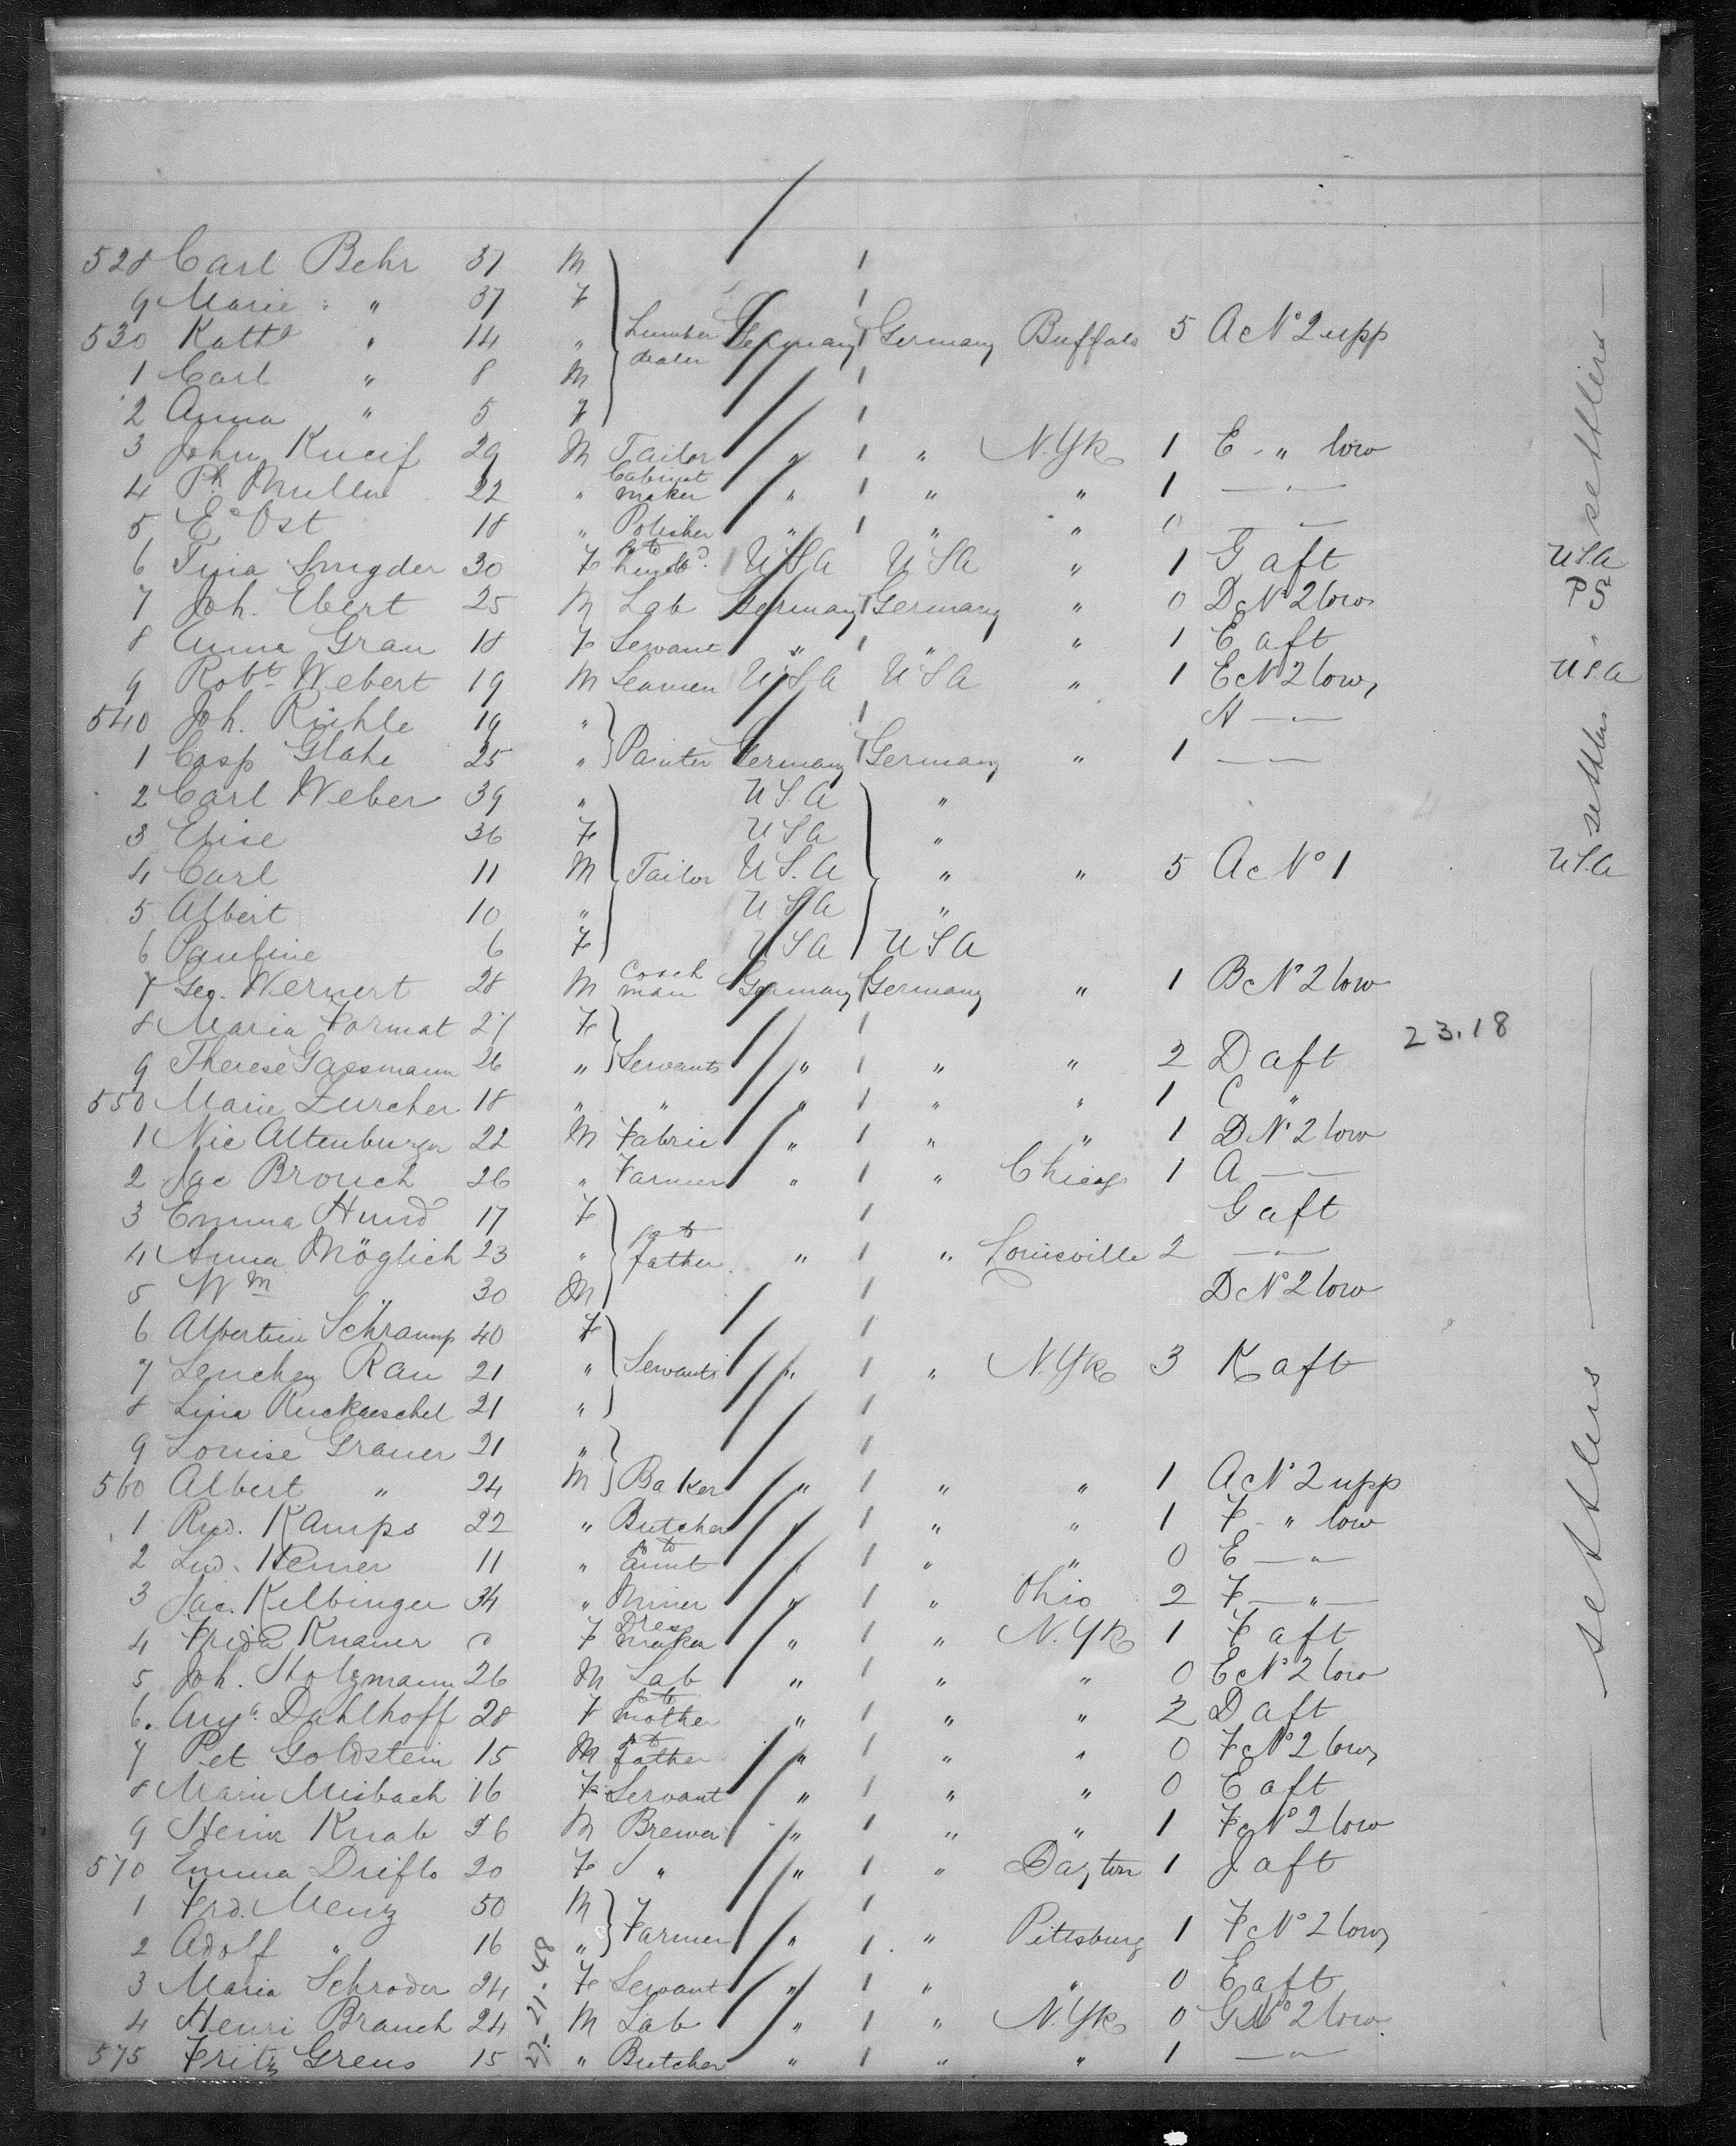 528 Carl Behr 37 M
9 Marie " 37 F
530 Kath " 14 " Lumber dealer Germany Germany Buffalo 5 A c No 2 upp
1 Carl " 8 M
2 Anna " 5 F
3 John Kneif 29 M Tailor " " N.Yk 1 E - " low
4 Ph Muller 22 " Cabinet maker " " " 1 — " —
5 E Ost 18 " Polisher " " " 0 — " —
6 Tina Snyder 30 F to husbd. USA USA " 1 G aft USA
7 Joh. Ebert 25 M Lab Germany Germany " 0 D c No 2 low P 5
8 Anna Grau 18 F Servant " " " 1 E aft "
9 Robt Webert 19 M Seamen USA USA " 1 E c No 2 low USA
540 Joh. Rühle 19 " H — " —
1 Casp Glahe 25 " Painter Germany Germany " 1 — " —
2 Carl Weber 39 " USA "
3 Elise 36 F USA "
4 Carl 11 M Tailor U.S.A " " 5 A c No 1 USA
5 Albert 10 " USA "
6 Pauline 6 F USA USA
7 Geo. Wernert 28 M Coach man Germany Germany " 1 B c No 2 low
8 Maria Format 21 F 23.18
9 Therese Gassmann 26 " Servants " " " 2 D aft
550 Marie Zurcher 18 " " " " " 1 C "
1 Nic Altenburger 22 M Fabric " " " 1 D No 2 low
2 Jac Brouch 26 " Farmer " " Chicago 1 A — " —
3 Emma Hund 17 F G aft
4 Anna Möglich 23 " to father " " Louisville 2 — " —
5 Wm " 30 M D c No 2 low
6 Albertine Schramp 40 F
7 Lenchen Rau 21 " Servants " " N.Yk 3 K aft
8 Lina Ruckaeschel 21 "
9 Louise Graner 21 "
560 Albert " 24 M Baker " " " 1 A c No 2 upp
1 Rud. Kamps 22 " Butcher " " " 1 F - " low
2 Lud. Hemer 11 " to Aunt " " " 0 E — " —
3 Jac. Kilbinger 34 " Miner " " Ohio 2 F — " —
4 Frida Knauer 0 F Dress maker " " N.Yk 1 F aft
5 Joh. Stolzmann 26 M Lab " " " 0 E c No 2 low
6. Aug. Dahlhoff 28 F to mother " " " 2 D aft
7 Pet Goldstein 15 M to father " " " 0 F c No 2 low
8 Marie Misbach 16 F Servant " " " 0 E aft
9 Heinr Knab 26 M Brewer " " " 1 F c No 2 low
570 Emma Driflo 20 F " " " Dayton 1 J aft
1 Frd. Menz 50 M
2 Adolf " 16 " Farmer " " Pittsburg 1 F c No 2 low
3 Maria Schroder 24 F Servant " " " 0 E aft
4 Henri Brauch 24 M Lab " " N.Yk 0 G No 2 low
575 Fritz Greus 15 " Butcher " " " 1 — " —
settlers
settlers
settlers